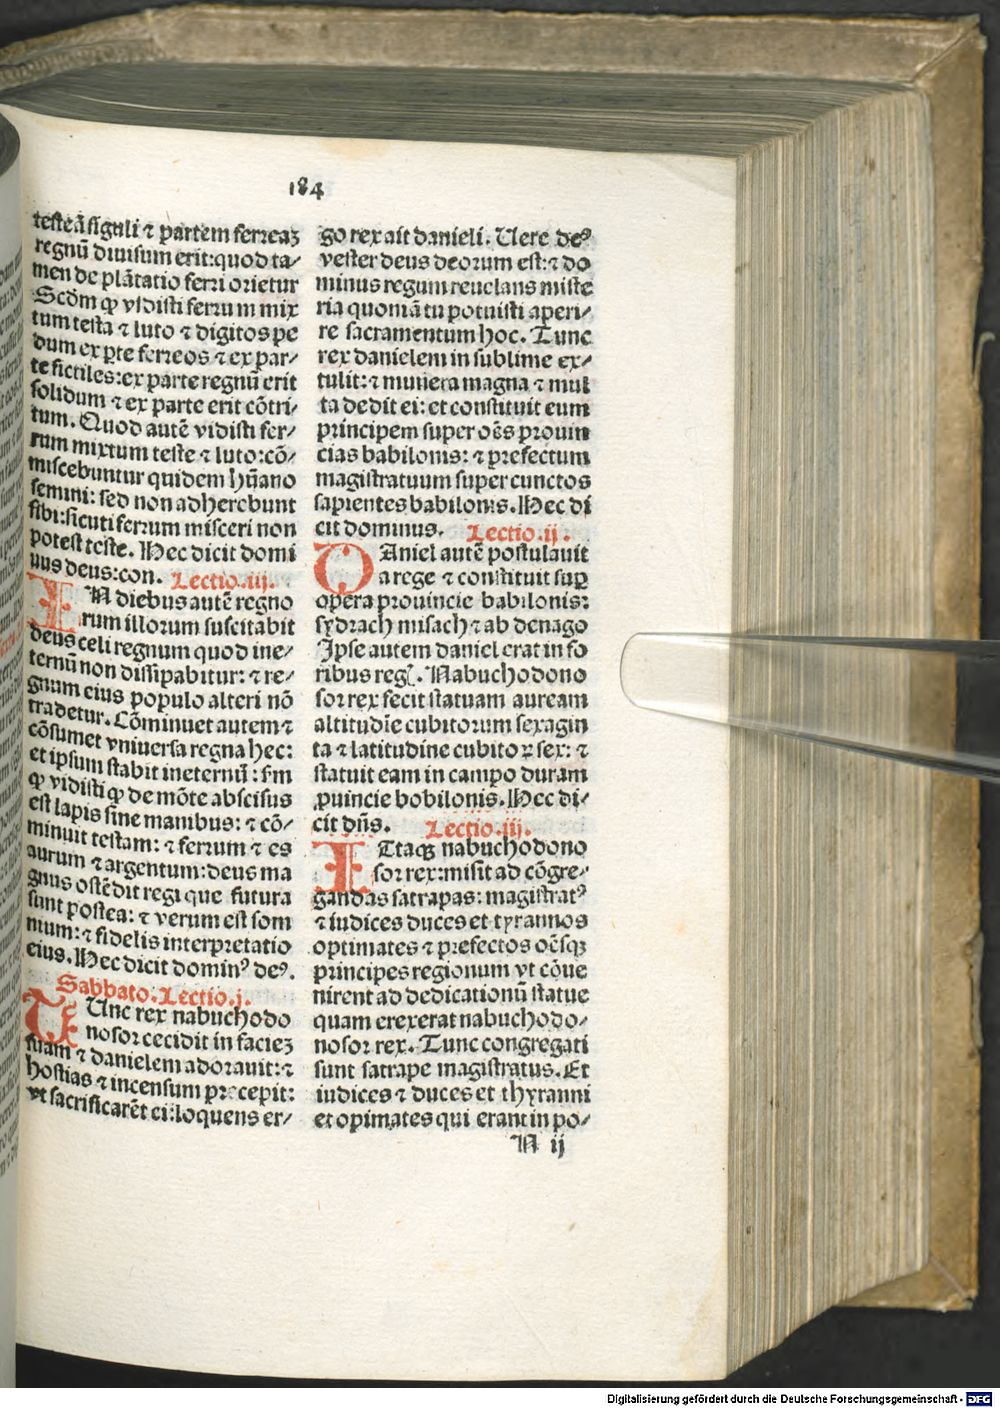 184
testeā figuli ⁊ partem ferreaꝫ
regnū diuisum erit: quod ta/
men de plātatio ferri orietur
Scd̄m ꝙ vidisti ferrum mix
tum testa ⁊ luto ⁊ digitos pe
dum ex ꝑte ferreos ⁊ ex par/
te fictiles: ex parte regnū erit
solidum ⁊ ex parte erit cōtri/
tum. Quod autē vidisti fer/
rum mixtum teste ⁊ luto: cō/
miscebuntur quidem hūano
semini: sed non adherebunt
sibi: sicuti ferrum misceri non
potest teste. Hec dicit domi
nus deus: con. Lectio. iij.
IN diebus autē regno
rum illorum suscitabit
deus celi regnum quod ine/
ternū non dissipabitur: ⁊ re/
gnum eius populo alteri nō
tradetur. Cōminuet autem ⁊
cōsumet vniuersa regna hec:
et ipsum stabit ineternū: s̄m
ꝙ vidisti ꝙ de mōte abscisus
est lapis sine manibus: ⁊ cō/
minuit testam: ⁊ ferrum ⁊ es
aurum ⁊ argentum: deus ma
gnus ostēdit regi que futura
sunt postea: ⁊ verum est som
nium: ⁊ fidelis interpretatio
eius. Hec dicit dominꝰ deꝰ.
Sabbato. Lectio. j.
TUnc rex nabuchodo
nosor cecidit in facieꝫ
suam ⁊ danielem adorauit: ⁊
hostias ⁊ incensum precepit:
vt sacrificarēt ei: loquens er/
go rex ait danieli. Uere deꝰ
vester deus deorum est: ⁊ do
minus regum reuelans miste
ria quoniā tu potuisti aperi/
re sacramentum hoc. Tunc
rex danielem in sublime ex/
tulit: ⁊ munera magna ⁊ mul
ta dedit ei: et constituit eum
principem super oēs prouin
cias babilonis: ⁊ prefectum
magistratuum super cunctos
sapientes babilonis. Hec di
cit dominus. Lectio. ij.
DAniel autē postulauit
a rege ⁊ constituit suꝑ
opera prouincie babilonis:
sydrach misach ⁊ ab denago
Ipse autem daniel erat in fo
ribus regꝭ. Nabuchodono
sor rex fecit statuam auream
altitudīe cubitorum sexagin
ta ⁊ latitudine cubitoꝝ sex: ⁊
statuit eam in campo duram
ꝓuincie bobilonis. Hec di/
cit dn̄s. Lectio. iij.
ITtaqꝫ nabuchodono
sor rex: misit ad cōgre/
gandas satrapas: magistratꝰ
⁊ iudices duces et tyrannos
optimates ⁊ prefectos oēsqꝫ
principes regionum vt cōue
nirent ad dedicationū statue
quam erexerat nabuchodo/
nosor rex. Tunc congregati
sunt satrape magistratus. Et
iudices ⁊ duces et thyranni
et opimates qui erant in po/
N ij
Digitalisierung gefördert durch die Deutsche Forschungsgemeinschaft - DFG